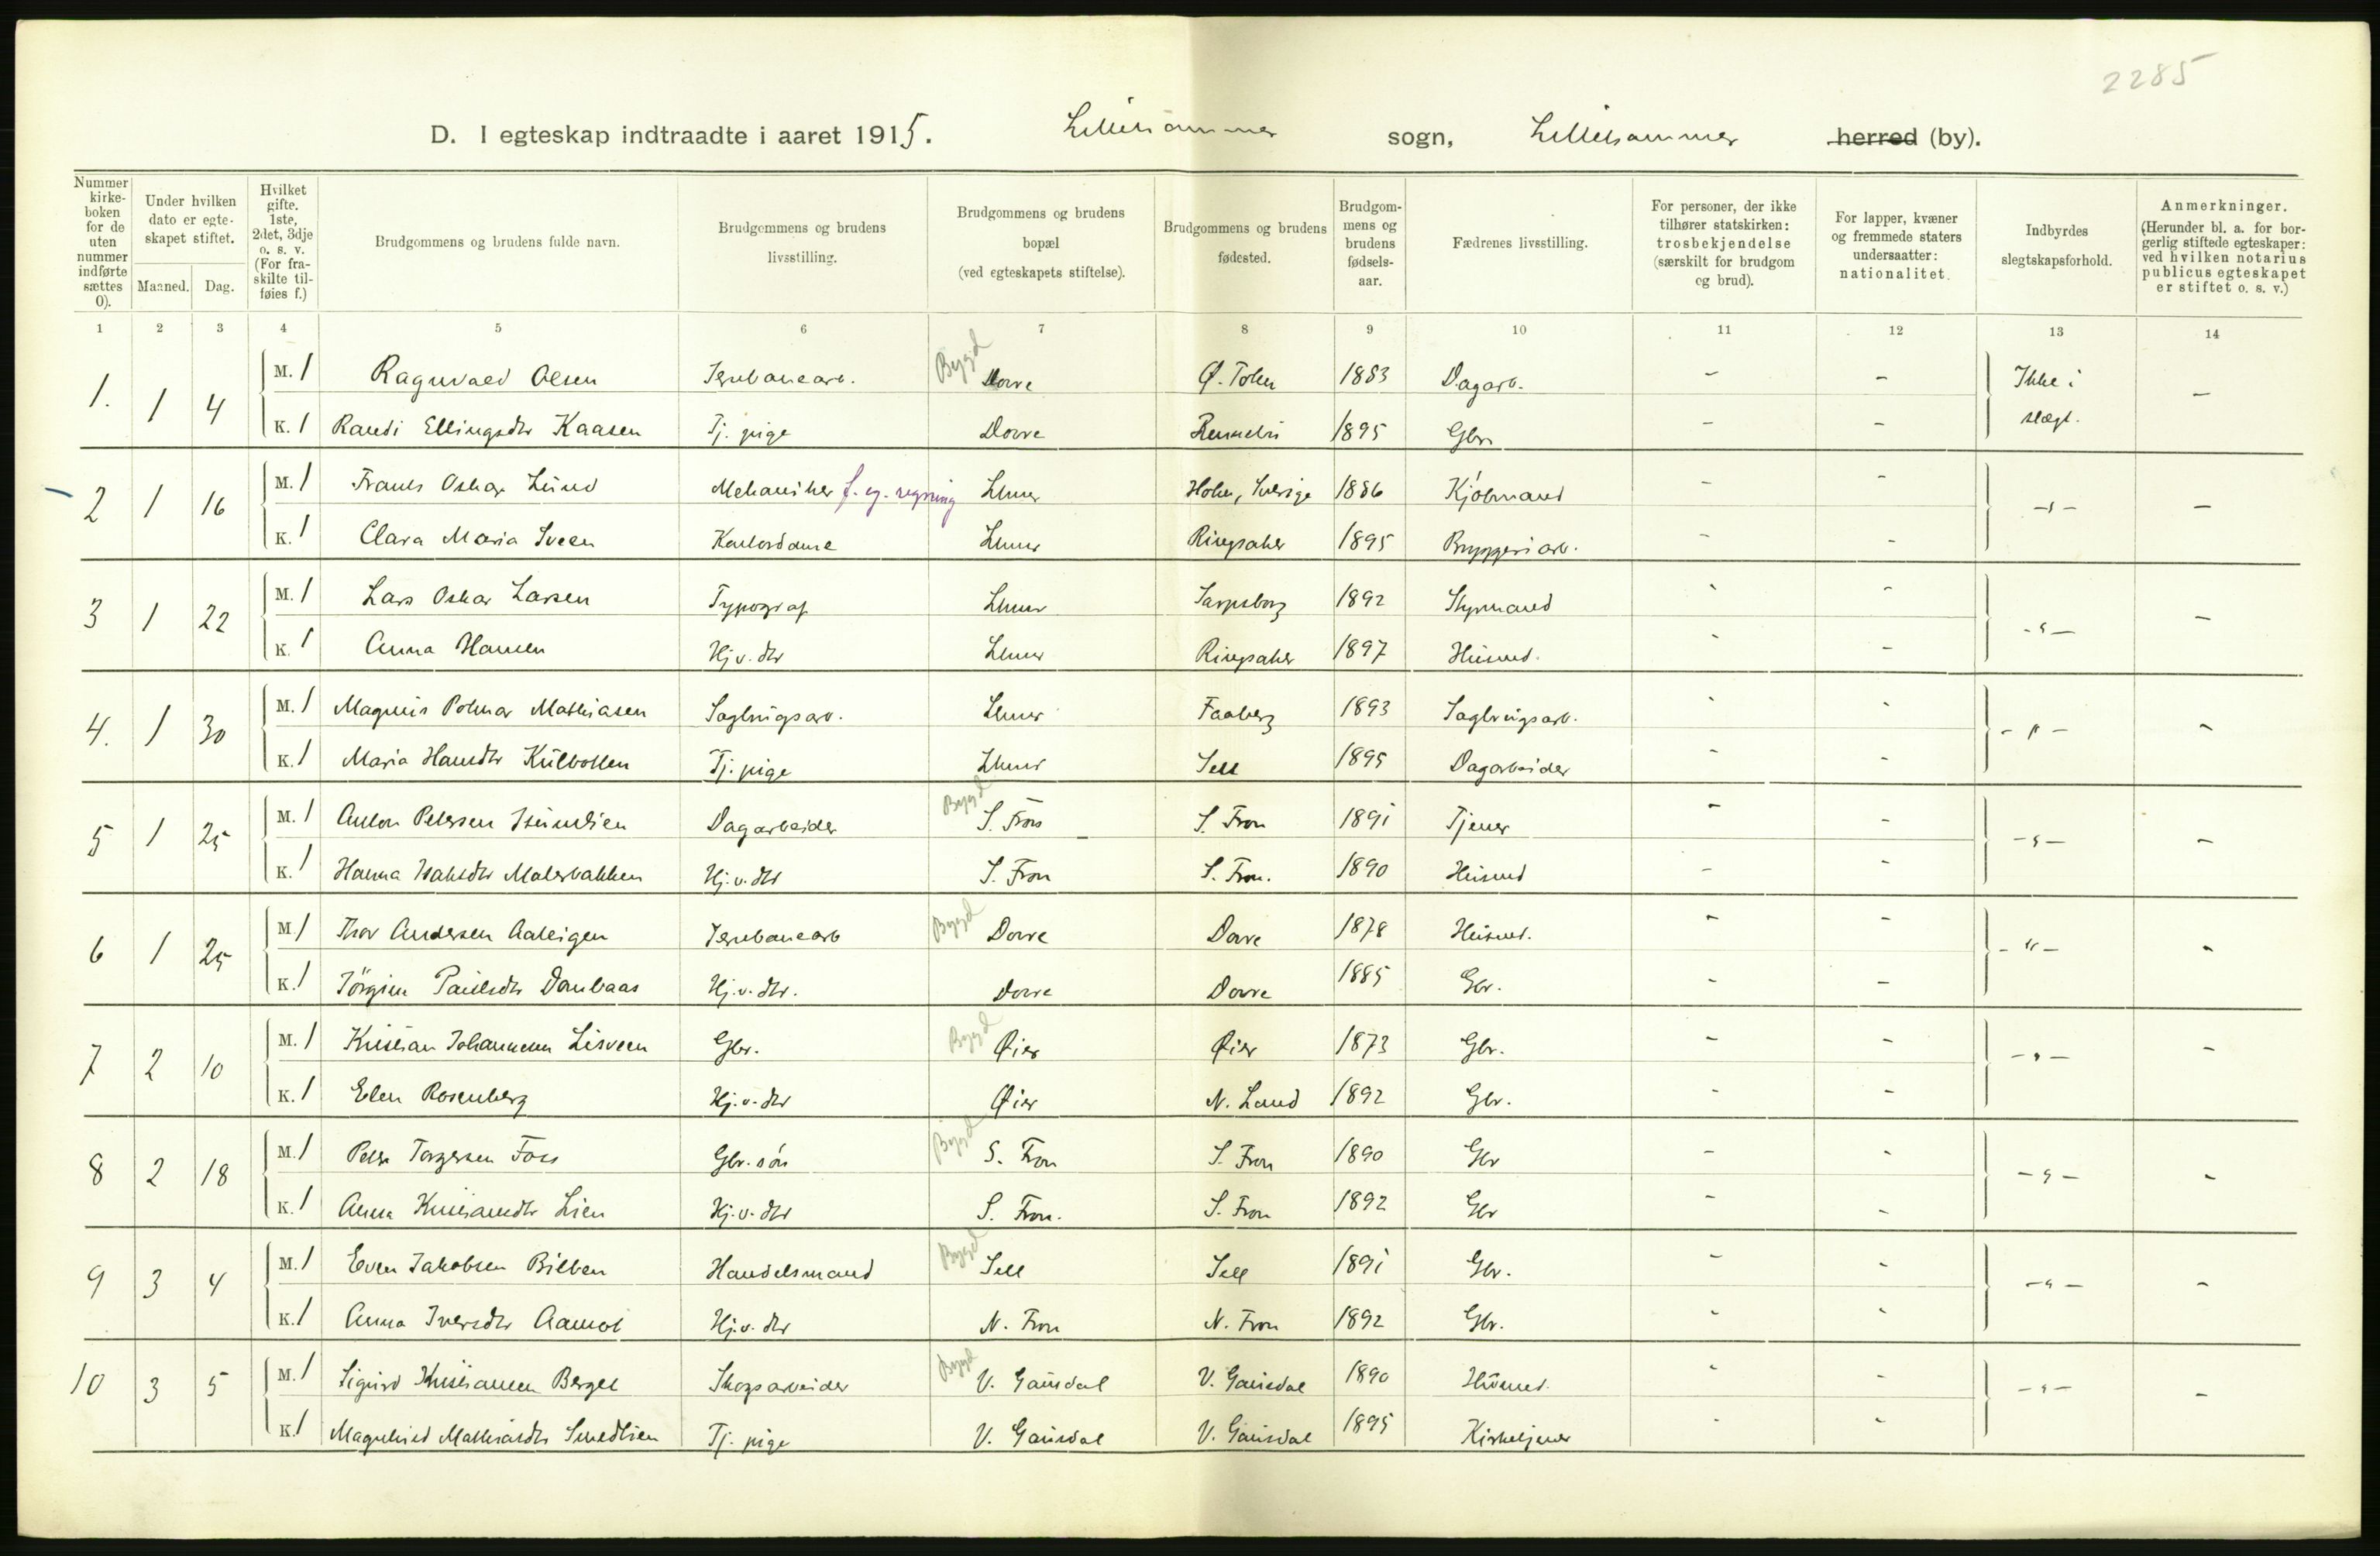 2285
D. I egteskap indtraadte i aaret 1915. Lillehammer sogn, Lillehammer herred (by).
Nummer kirke-boken for de uten nummer indførte sættes 0). | Under hvilken dato er egte-skapet stiftet. Maaned. Dag. | Hvilket gifte. 1ste, 2det, 3dje o. s. v. (For fra-skilte til-føies f.) | Brudgommens og brudens fulde navn. | Brudgommens og brudens livsstilling. | Brudgommens og brudens bopæl (ved egteskapets stiftelse). | Brudgommens og brudens fødested. | Brudgom-mens og brudens fødsels-aar. | Fædrenes livsstilling. | For personer, der ikke tilhører statskirken: trosbekjendelse (særskilt for brudgom og brud). | For lapper, kvæner og fremmede staters undersaatter: nationalitet. | Indbyrdes slegtskapsforhold. | Anmerkninger. (Herunder bl. a. for bor-gerlig stiftede egteskaper: ved hvilken notarius publicus egteskapet er stiftet o. s. v.)
1 2 3 4 5 6 7 8 9 10 11 12 13 14
1. 1 4 M. 1 Ragnvald Olsen Jernbanearb. Bygd Dovre Ø. Toten 1883 Dagarb. - - Ikke i slægt. -
K. 1 Randi Ellingsdtr Kaasen Tj. pige Dovre Rennebu 1895 Gbr. - -
2 1 16 M. 1 Frants Oskar Lund Mekaniker f. eg. regning Lhmr , Sverige 1886 Kjøbmand - - -"- -
K. 1 Clara Maria Sveen Kontordame Lhmr Ringsaker 1895 Bryggeriarb. - -
3 1 22 M. 1 Lars Oskar Larsen Typograf Lhmr Sarpsborg 1892 Styrmand - - -"- -
K. 1 Anna Hansen Hj.v. dtr Lhmr Ringsaker 1897 Husmd. - -
4. 1 30 M. 1 Magnus Polmar Mathiasen Sagbrugsarb. Lhmr Faaberg 1893 Sagbrugsarb. - - -"- -
K. 1 Maria Hansdtr Tj. pige Lhmr Sell 1895 Dagarbeider - -
5 1 25 M. 1 Anton Petersen Dagarbeider Bygd S. Fron S. Fron 1891 Tjener - - -"- -
K. 1 Hanna Isaksdtr Malerbakken Hj.v. dtr S. Fron S. Fron. 1890 Husmd - -
6 1 25 M. 1 Thor Andersen Jernbanearb Bygd Dovre Dovre 1878 Husmd. - - -"- -
K. 1 Jörgine Paulsdtr Dombaas Hj.v. dtr. Dovre Dovre 1885 Gbr. - -
7 2 10 M. 1 Kristian Johannesen Lisveen Gbr. Bygd Øier Øier 1873 Gbr. - - -"- -
K. 1 Elen Rosenberg Hj.v. dtr Øier N. Land 1892 Gbr. - -
8 2 18 M. 1 Peter Torgersen Foss Gbr. sön Bygd S. Fron S. Fron 1890 Gbr - - -"- -
K. 1 Anna Kristiansdtr Lien Hj.v. dtr S. Fron. S. Fron 1892 Gbr - -
9 3 4 M. 1 Even Jakobsen Bilben Handelsmand Bygd Sell Sell 1891 Gbr. - - -"- -
K. 1 Anna Iversdtr Aamot Hj.v. dtr N. Fron N. Fron 1892 Gbr. - -
10 3 5 M. 1 Sigurd Kristiansen Berget Skogsarbeider Bygd V. Gausdal V. Gausdal 1890 Husmd. - - -"- -
K. 1 Magnhild Mathiasdtr Smedlien Tj. pige V. Gausdal V. Gausdal 1895 Kirketjener - -